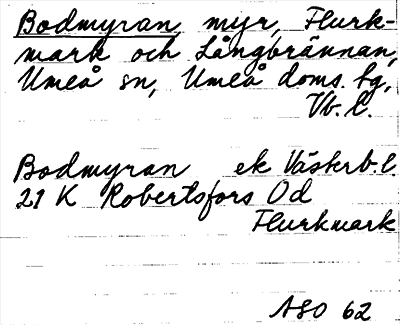 Bodmyran, myr, Flurk-
mark och Långbrännan,
Umeå sn, Umeå doms. bg,
Vb. l.
Bodmyran ek Västerb. l.
21 K Robertsfors Od
Flurkmark
ASO 62